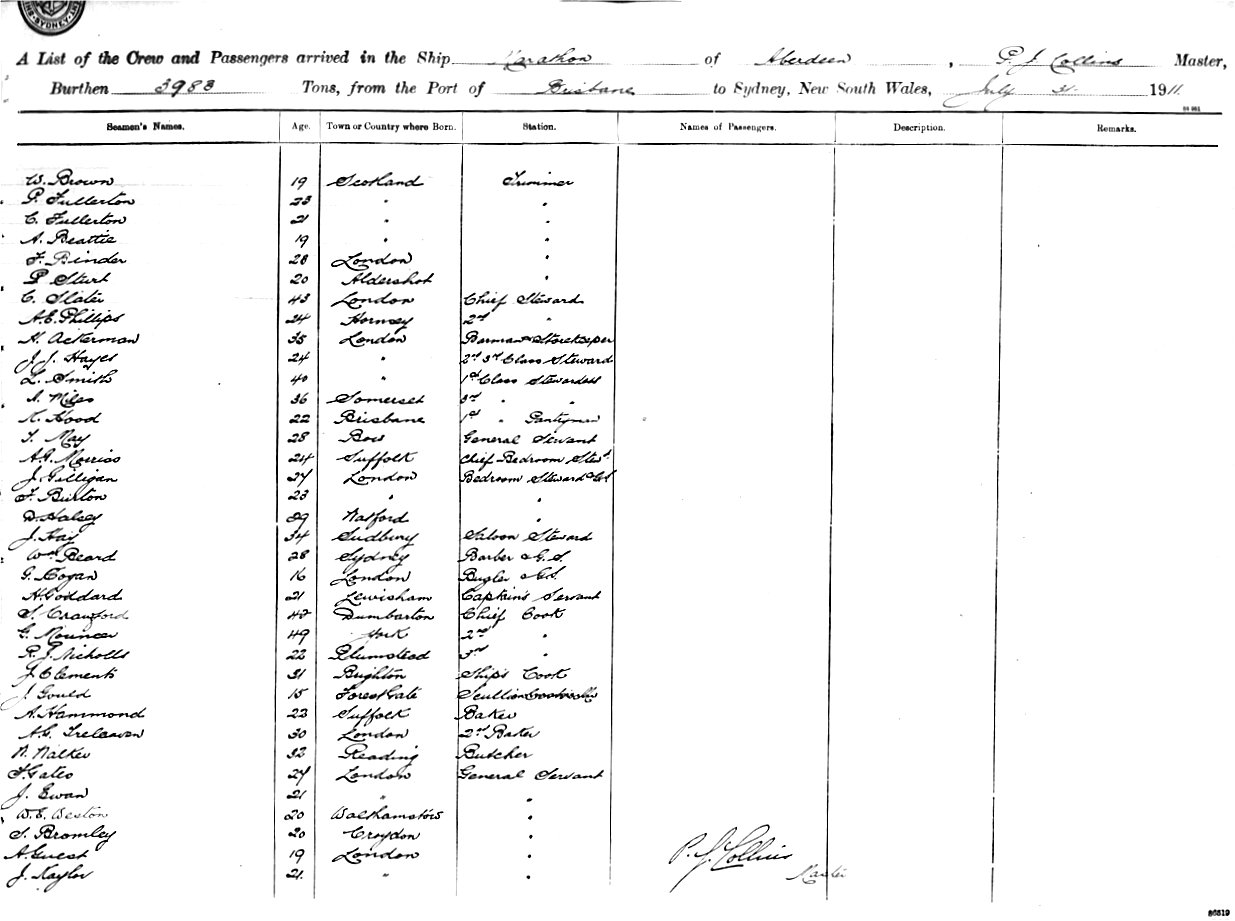 SYDNEY
A List of the Crew and Passengers arrived in the Ship Marathon of Aberdeen, P. J. Collins Master,
Burthen 3983 Tons, from the Port of Brisbane to Sydney, New South Wales, July 31 1911
Seamen's Names. Age. Town or Country where Born. Station. Names of Passengers. Description. Remarks.
W. Brown 19 Scotland Trimmer
P. Fullerton 23 " "
C. Fullerton 21 " "
A. Beattie 19 " "
F. Binder 28 London "
P Sturt 20 Aldershot "
C. Slater 43 London Chief Steward
A.E. Phillips 24 Hornsey 2nd "
H. Ackerman 35 London Barman & Storekeeper
J. J. Hayes 24 " 2nd 3rd Class Steward
L. Smith 40 " 1st Class Stewardess
A. Miles 36 Somerset 3rd " "
K. Hood 22 Brisbane 1st " Pantryman
T. May 28 Bow General Servant
A.G. Morriss 24 Suffolk Chief Bedroom Stewd
J. Gilligan 27 London Bedroom Steward & GS
F. Burton 23 " "
D. Halsey 29 Watford "
J. Hay 34 Sudbury Saloon Steward
Wm Beard 28 Sydney Barber & G.S.
G. Hogan 16 London Bugler & GS.
H Goddard 21 Lewisham Captain's Servant
S. Crawford 42 Dumbarton Chief Cook
G. Mouncer 49 York 2nd "
R. J. Nicholls 22 Plumstead 3rd "
J. Clements 31 Brighton Ships Cook
J. Gould 18 Forest Gate Scullion
A. Hammond 22 Suffolk Baker
A.G. Treleaven 30 London 2nd Baker
W. Walker 32 Reading Butcher
F. Gates 27 London General Servant
J. Ewan 21 " "
W.E. Weston 20 Walthamstow "
S. Bromley 20 Croydon "
A. Guest 19 London "
J. Naylor 21 " "
P. J. Collins
Master
86519